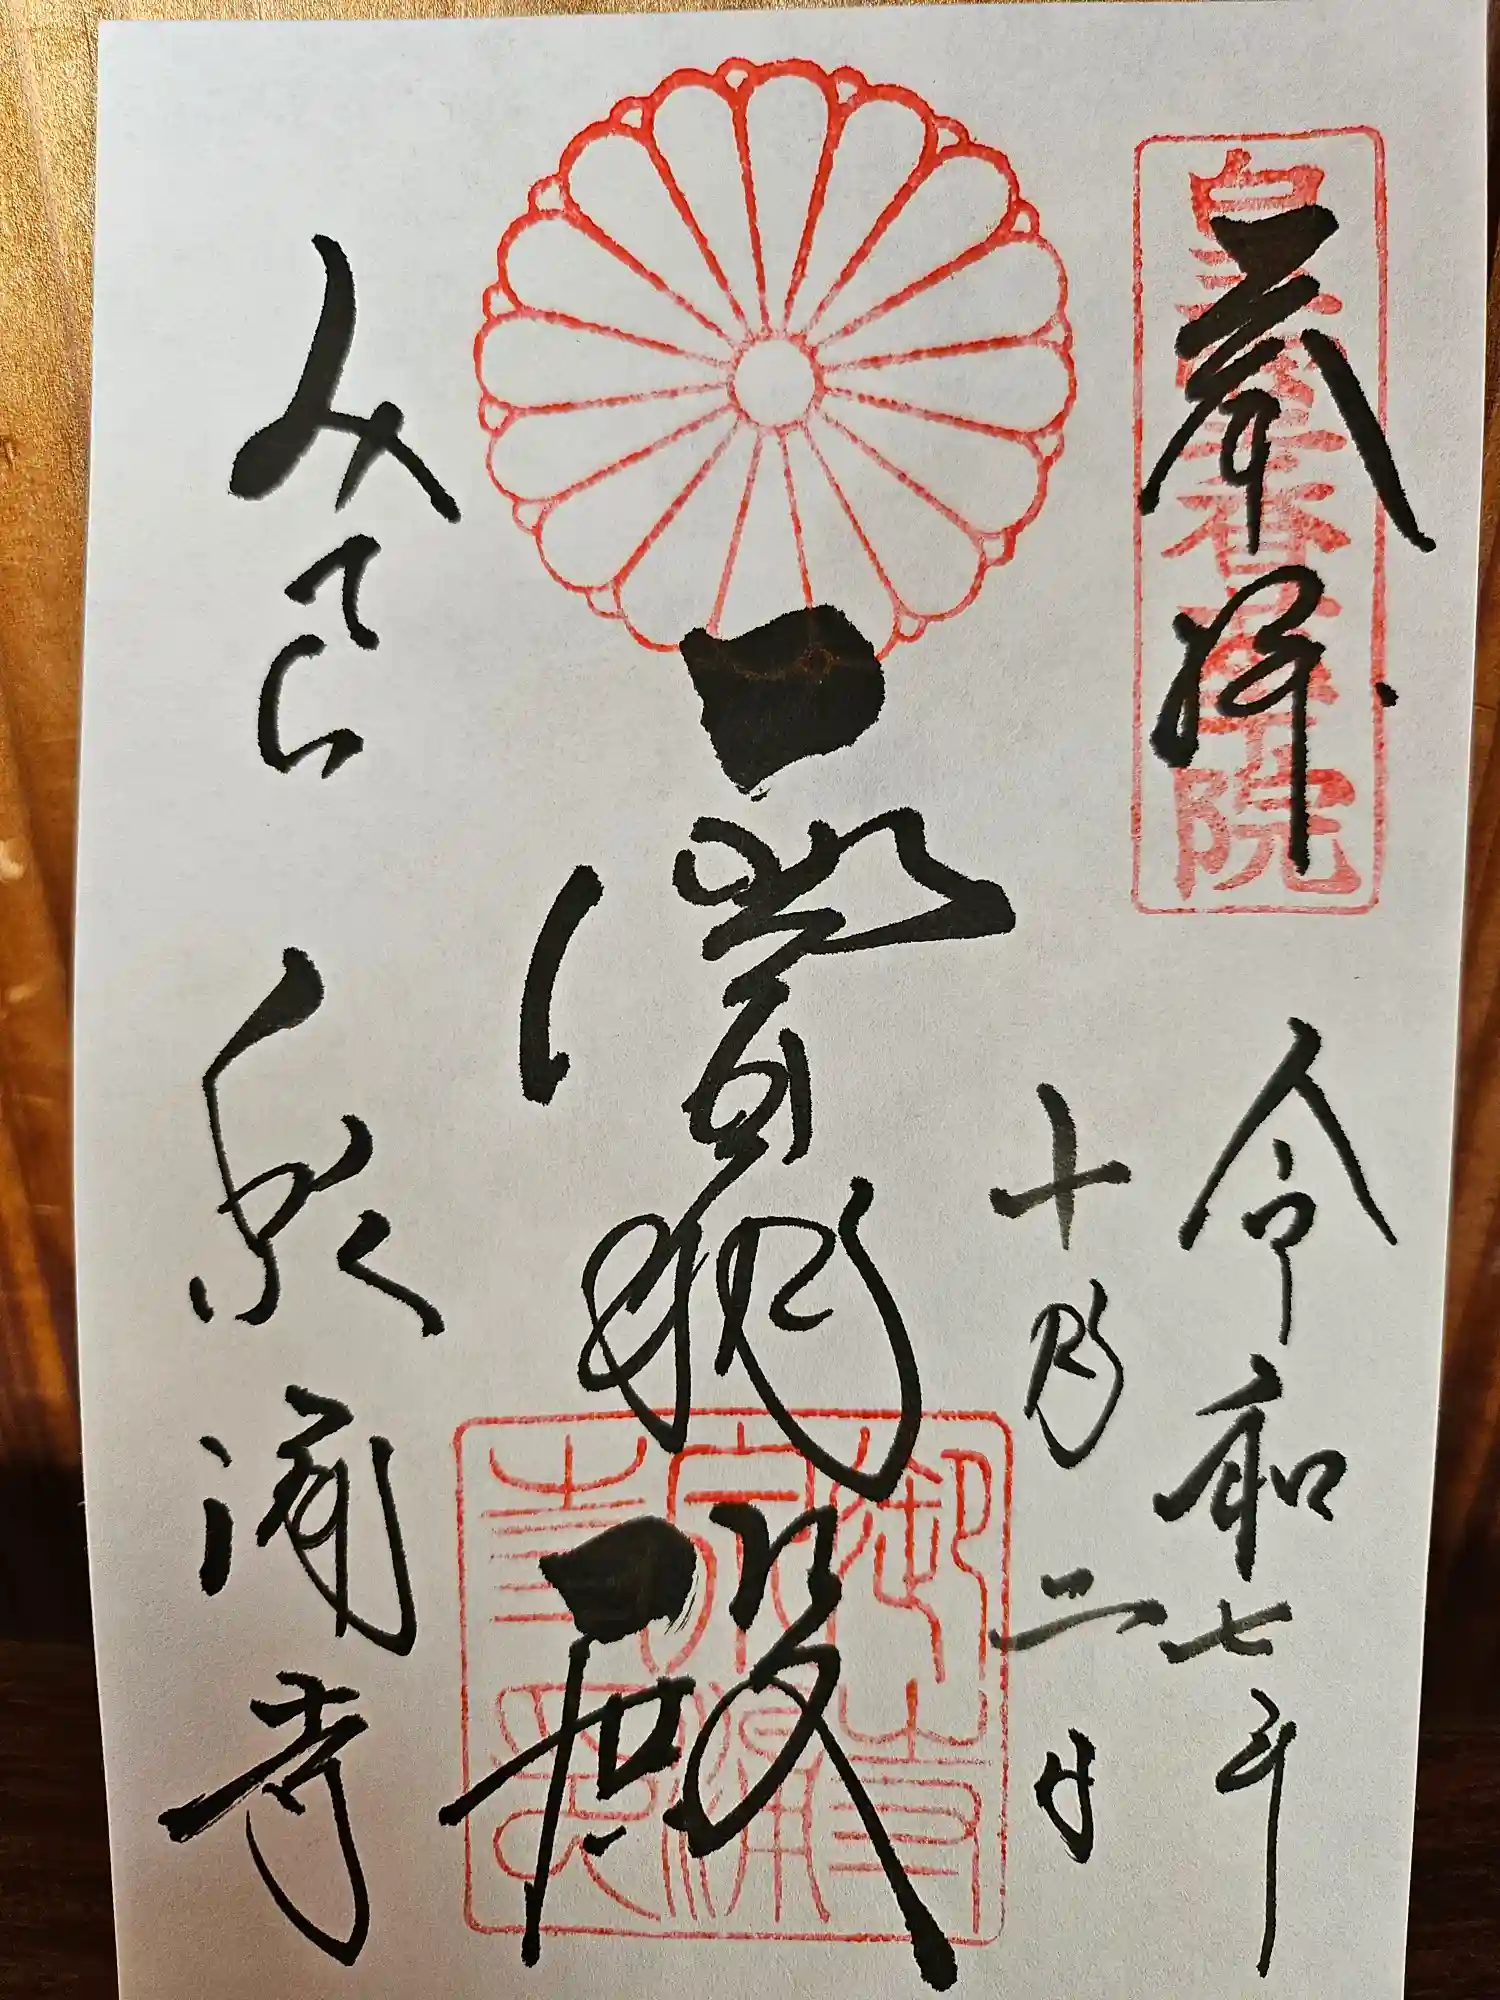 皇室香華院
奉拝
令和七年
十月二日
霊明殿
御寺
泉涌
寺印
みてら 泉涌寺